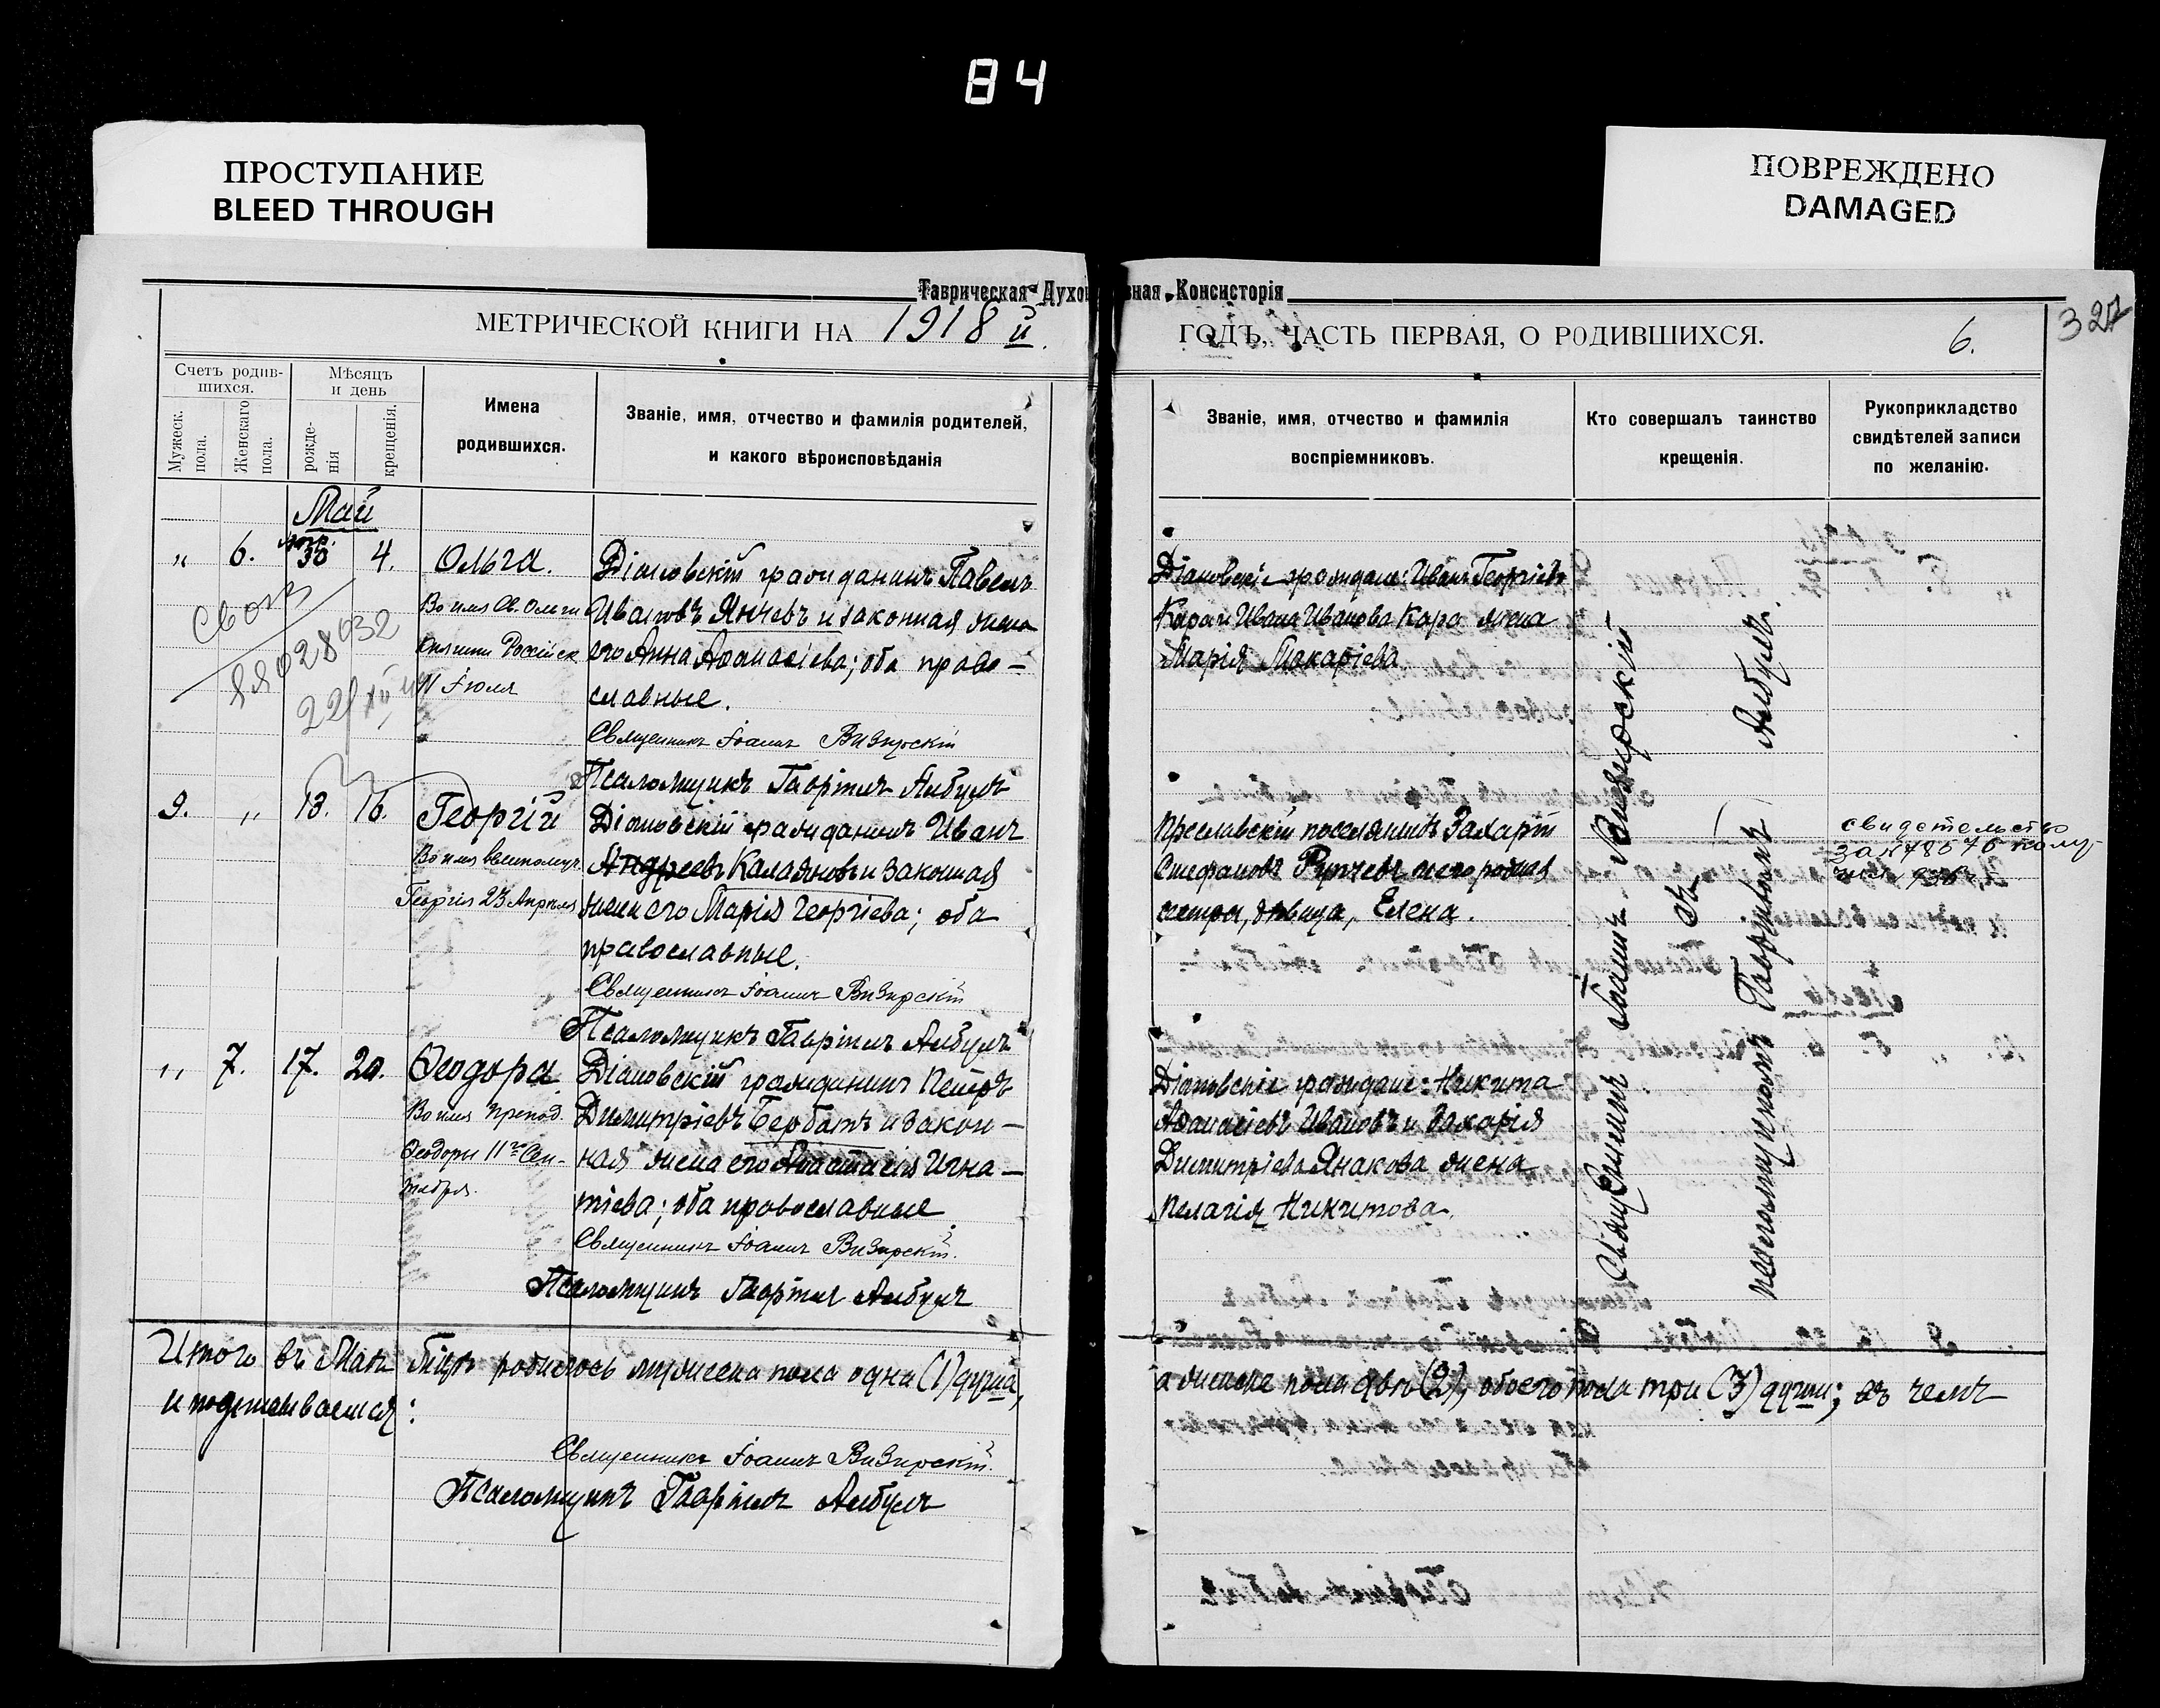 84
ПРОСТУПАНИЕ
BLEED THROUGH
ПОВРЕЖДЕНО
DAMAGED
Таврическая Духовная Консисторія
МЕТРИЧЕСКОЙ КНИГИ НА 1918 й.
ГОДЪ, ЧАСТЬ ПЕРВАЯ, О РОДИВШИХСЯ.
6.
327
Счетъ родив-
шихся.
Мужеск.
пола.
Женскаго
пола.
Мѣсяцъ
и день
рожде-
нія
крещенія.
Имена
родившихся.
Званіе, имя, отчество и фамилія родителей,
и какого вѣроисповѣданія
Званіе, имя, отчество и фамилія
воспріемниковъ.
Кто совершалъ таинство
крещенія.
Рукоприкладство
свидѣтелей записи
по желанію.
Май
„ 6. 30 4. Ольга.
Во имя Св. Ольги
Княгини Россійск
11 Іюля
Діановскій гражданинъ Павелъ
Ивановъ Янчевъ и законная жена
его Анна Аѳанасіева; оба право-
славные.
Священникъ Іоаннъ Визирскій
Псаломщикъ Гавріилъ Албулъ
Діановскіе граждане: Иванъ Георгіевъ
Кара и Ивана Иванова Кара жена
Марія Макаріева
028032
9. „ 13. 16. Георгій
Во имя великомуч.
Георгія 23 Апрѣля
Діановскій гражданинъ Иванъ
Андреевъ Калаяновъ и законная
жена его Марія Георгіева; оба
православные.
Священникъ Іоаннъ Визирскій
Псаломщикъ Гавріилъ Албулъ
Преславскій поселянинъ Захарій
Стефановъ Рупчевъ и его родная
сестра, дѣвица, Елена.
свидетельство
„ 7. 17. 20. Ѳеодора
Во имя препод.
Ѳеодоры 11го Сен-
тября.
Діановскій гражданинъ Петръ
Димитріевъ Бербатъ и закон-
ная жена его Анастасія Игна-
тіева; оба православные
Священникъ Іоаннъ Визирскій.
Псаломщикъ Гавріилъ Албулъ
Діановскіе граждане: Никита
Аѳанасіевъ Ивановъ и Захарія
Димитріева Янакова жена
Пелагія Никитова.
Священникъ Іоаннъ Визирскій
съ
псаломщикомъ Гавріиломъ Албулъ.
Итого въ Маѣ м-цѣ родилось мужеска пола одна (1) душа,
а женска пола двѣ (2), обоего пола три (3) души; въ чемъ
и подписываемся:
Священникъ Іоаннъ Визирскій.
Псаломщикъ Гавріилъ Албулъ